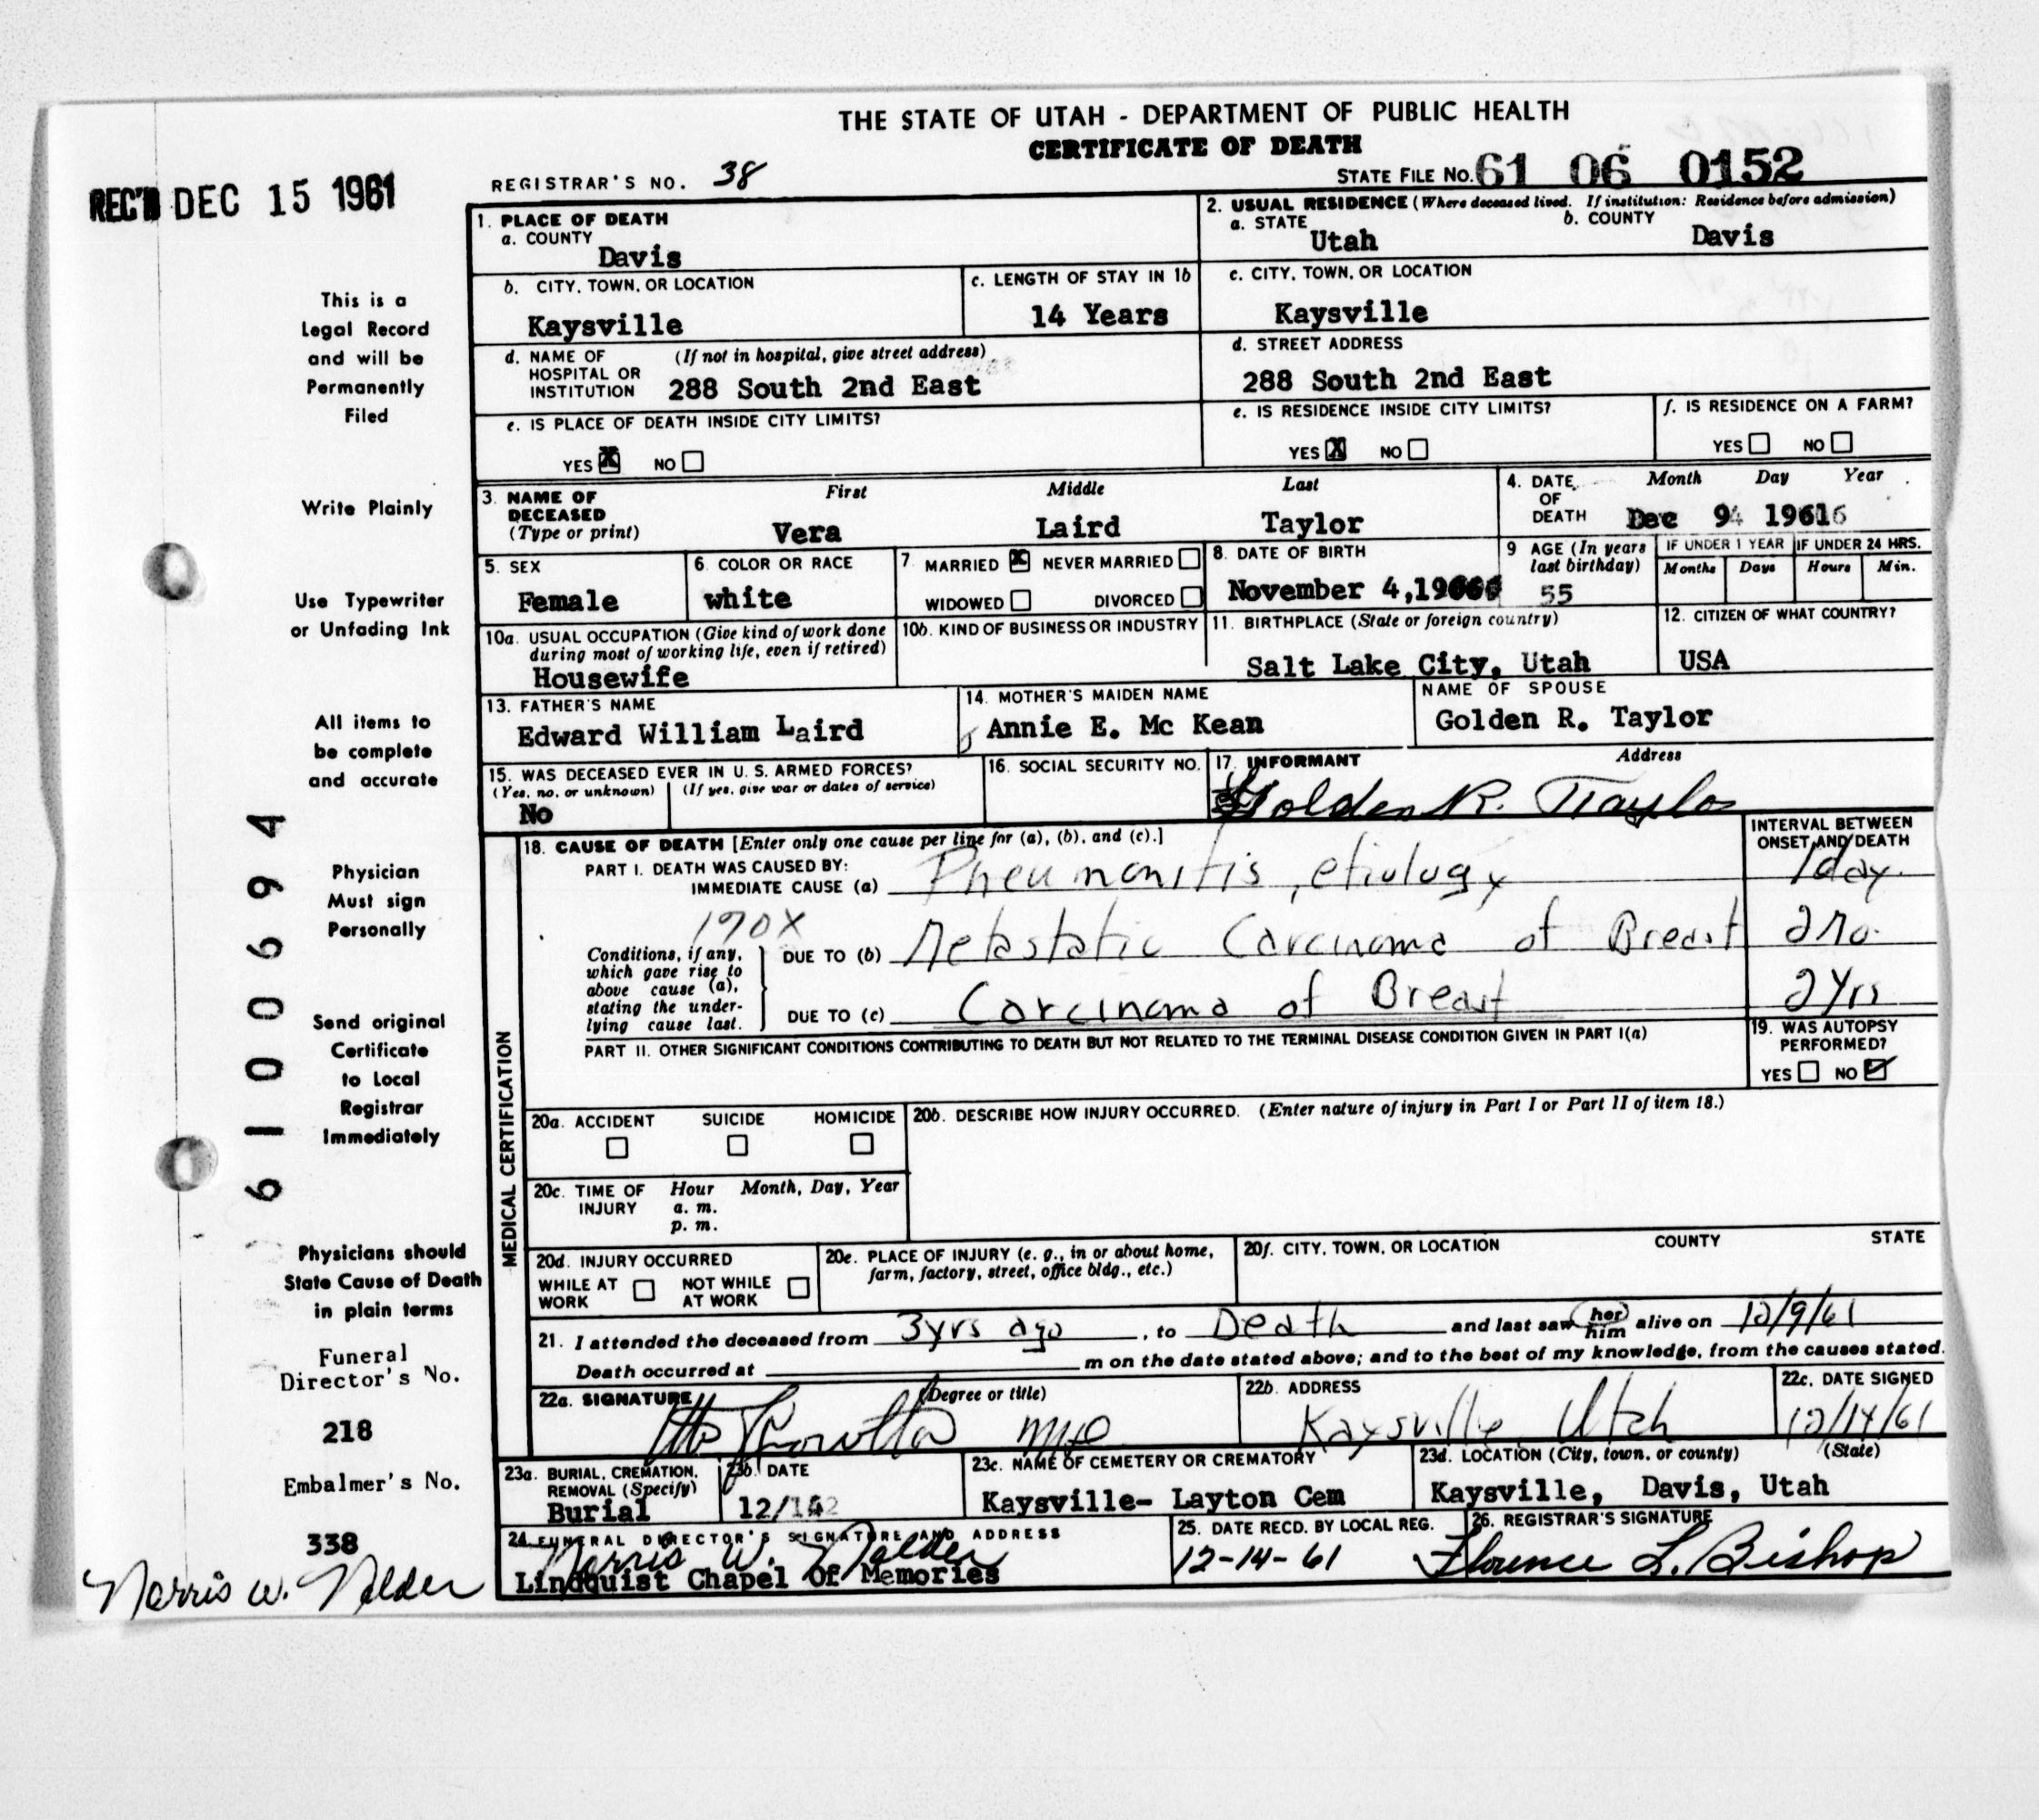 THE STATE OF UTAH - DEPARTMENT OF PUBLIC HEALTH
CERTIFICATE OF DEATH
REC'D DEC 15 1961
REGISTRAR'S NO. 38
STATE FILE NO. 61 06 0152
1. PLACE OF DEATH
a. COUNTY
Davis
2. USUAL RESIDENCE (Where deceased lived. If institution: Residence before admission)
a. STATE Utah b. COUNTY Davis
b. CITY, TOWN, OR LOCATION
Kaysville
c. LENGTH OF STAY IN 1b
14 Years
c. CITY, TOWN, OR LOCATION
Kaysville
d. NAME OF HOSPITAL OR INSTITUTION (If not in hospital, give street address)
288 South 2nd East
d. STREET ADDRESS
288 South 2nd East
e. IS PLACE OF DEATH INSIDE CITY LIMITS?
YES X NO
e. IS RESIDENCE INSIDE CITY LIMITS?
YES X NO
f. IS RESIDENCE ON A FARM?
YES NO
3. NAME OF DECEASED (Type or print)
First Middle Last
Vera Laird Taylor
4. DATE OF DEATH Month Day Year
Dec 9 1961
5. SEX
Female
6. COLOR OR RACE
white
7. MARRIED X NEVER MARRIED
WIDOWED DIVORCED
8. DATE OF BIRTH
November 4,
9 AGE (In years last birthday)
55
IF UNDER 1 YEAR
Months Days
IF UNDER 24 HRS.
Hours Min.
10a. USUAL OCCUPATION (Give kind of work done during most of working life, even if retired)
Housewife
10b. KIND OF BUSINESS OR INDUSTRY
11. BIRTHPLACE (State or foreign country)
Salt Lake City, Utah
12. CITIZEN OF WHAT COUNTRY?
USA
13. FATHER'S NAME
Edward William Laird
14. MOTHER'S MAIDEN NAME
Annie E. Mc Kean
NAME OF SPOUSE
Golden R. Taylor
15. WAS DECEASED EVER IN U. S. ARMED FORCES?
(Yes, no, or unknown) (If yes, give war or dates of service)
No
16. SOCIAL SECURITY NO.
17. INFORMANT Address
Golden R. Taylor
MEDICAL CERTIFICATION
18. CAUSE OF DEATH [Enter only one cause per line for (a), (b), and (c).]
INTERVAL BETWEEN ONSET AND DEATH
PART I. DEATH WAS CAUSED BY:
IMMEDIATE CAUSE (a) Pneumonitis, etiology 1 day.
170X
Conditions, if any, which gave rise to above cause (a), stating the underlying cause last.
DUE TO (b) Metastatic Carcinoma of Breast 2 Mo.
DUE TO (c) Carcinoma of Breast 2 Yrs
PART II. OTHER SIGNIFICANT CONDITIONS CONTRIBUTING TO DEATH BUT NOT RELATED TO THE TERMINAL DISEASE CONDITION GIVEN IN PART I(a)
19. WAS AUTOPSY PERFORMED?
YES NO ✓
20a. ACCIDENT SUICIDE HOMICIDE
20b. DESCRIBE HOW INJURY OCCURRED. (Enter nature of injury in Part I or Part II of item 18.)
20c. TIME OF INJURY Hour Month, Day, Year
a. m.
p. m.
20d. INJURY OCCURRED
WHILE AT WORK NOT WHILE AT WORK
20e. PLACE OF INJURY (e. g., in or about home, farm, factory, street, office bldg., etc.)
20f. CITY, TOWN, OR LOCATION COUNTY STATE
21. I attended the deceased from 3 yrs ago, to Death and last saw her him alive on 12/9/61
Death occurred at m on the date stated above; and to the best of my knowledge, from the causes stated.
22a. SIGNATURE (Degree or title)
22b. ADDRESS
Kaysville, Utah
22c. DATE SIGNED
12/14/61
23a. BURIAL, CREMATION, REMOVAL (Specify)
Burial
23b. DATE
12/
23c. NAME OF CEMETERY OR CREMATORY
Kaysville- Layton Cem
23d. LOCATION (City, town, or county) (State)
Kaysville, Davis, Utah
24 FUNERAL DIRECTOR'S SIGNATURE AND ADDRESS
Norris W. Nalder
Lindquist Chapel Of Memories
25. DATE RECD. BY LOCAL REG.
12-14-61
26. REGISTRAR'S SIGNATURE
Florence L. Bishop
This is a
Legal Record
and will be
Permanently
Filed
Write Plainly
Use Typewriter
or Unfading Ink
All items to
be complete
and accurate
Physician
Must sign
Personally
Send original
Certificate
to Local
Registrar
Immediately
Physicians should
State Cause of Death
in plain terms
Funeral
Director's No.
218
Embalmer's No.
338
Norris W. Nalder
6100694